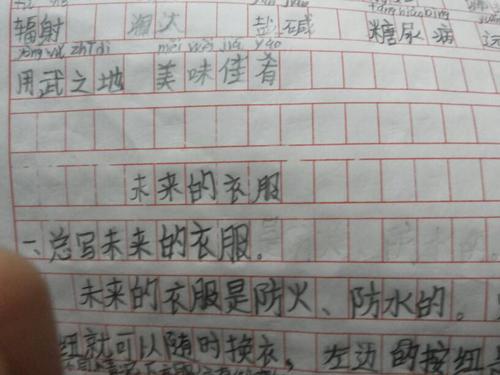 辐射 湘大 盐碱 糖尿病
yòng wǔ zhī dì měi wèi jiā yáo
用武之地 美味佳肴
未来的衣服
一、总写未来的衣服。
未来的衣服是防火、防水的。
钮就可以随时换衣，左边的按钮